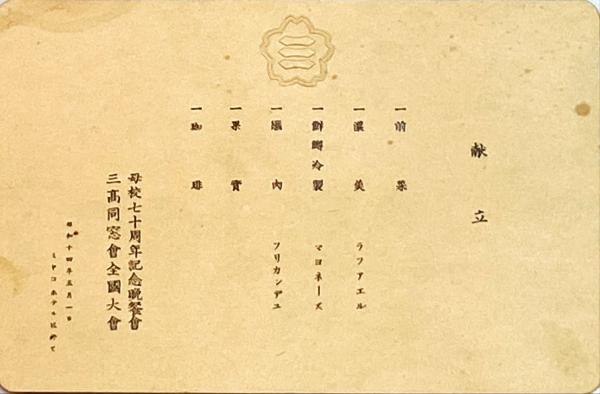 献立
一前菜
一濃羮 ラフアエル
一鮮鱒冷製 マヨネーズ
一 肉 フリカンデユ
一果實
一珈琲
母校七十周年記念晩餐會
三高同窓會全國大會
昭和十四年五月一日
ミヤコホテルに於て